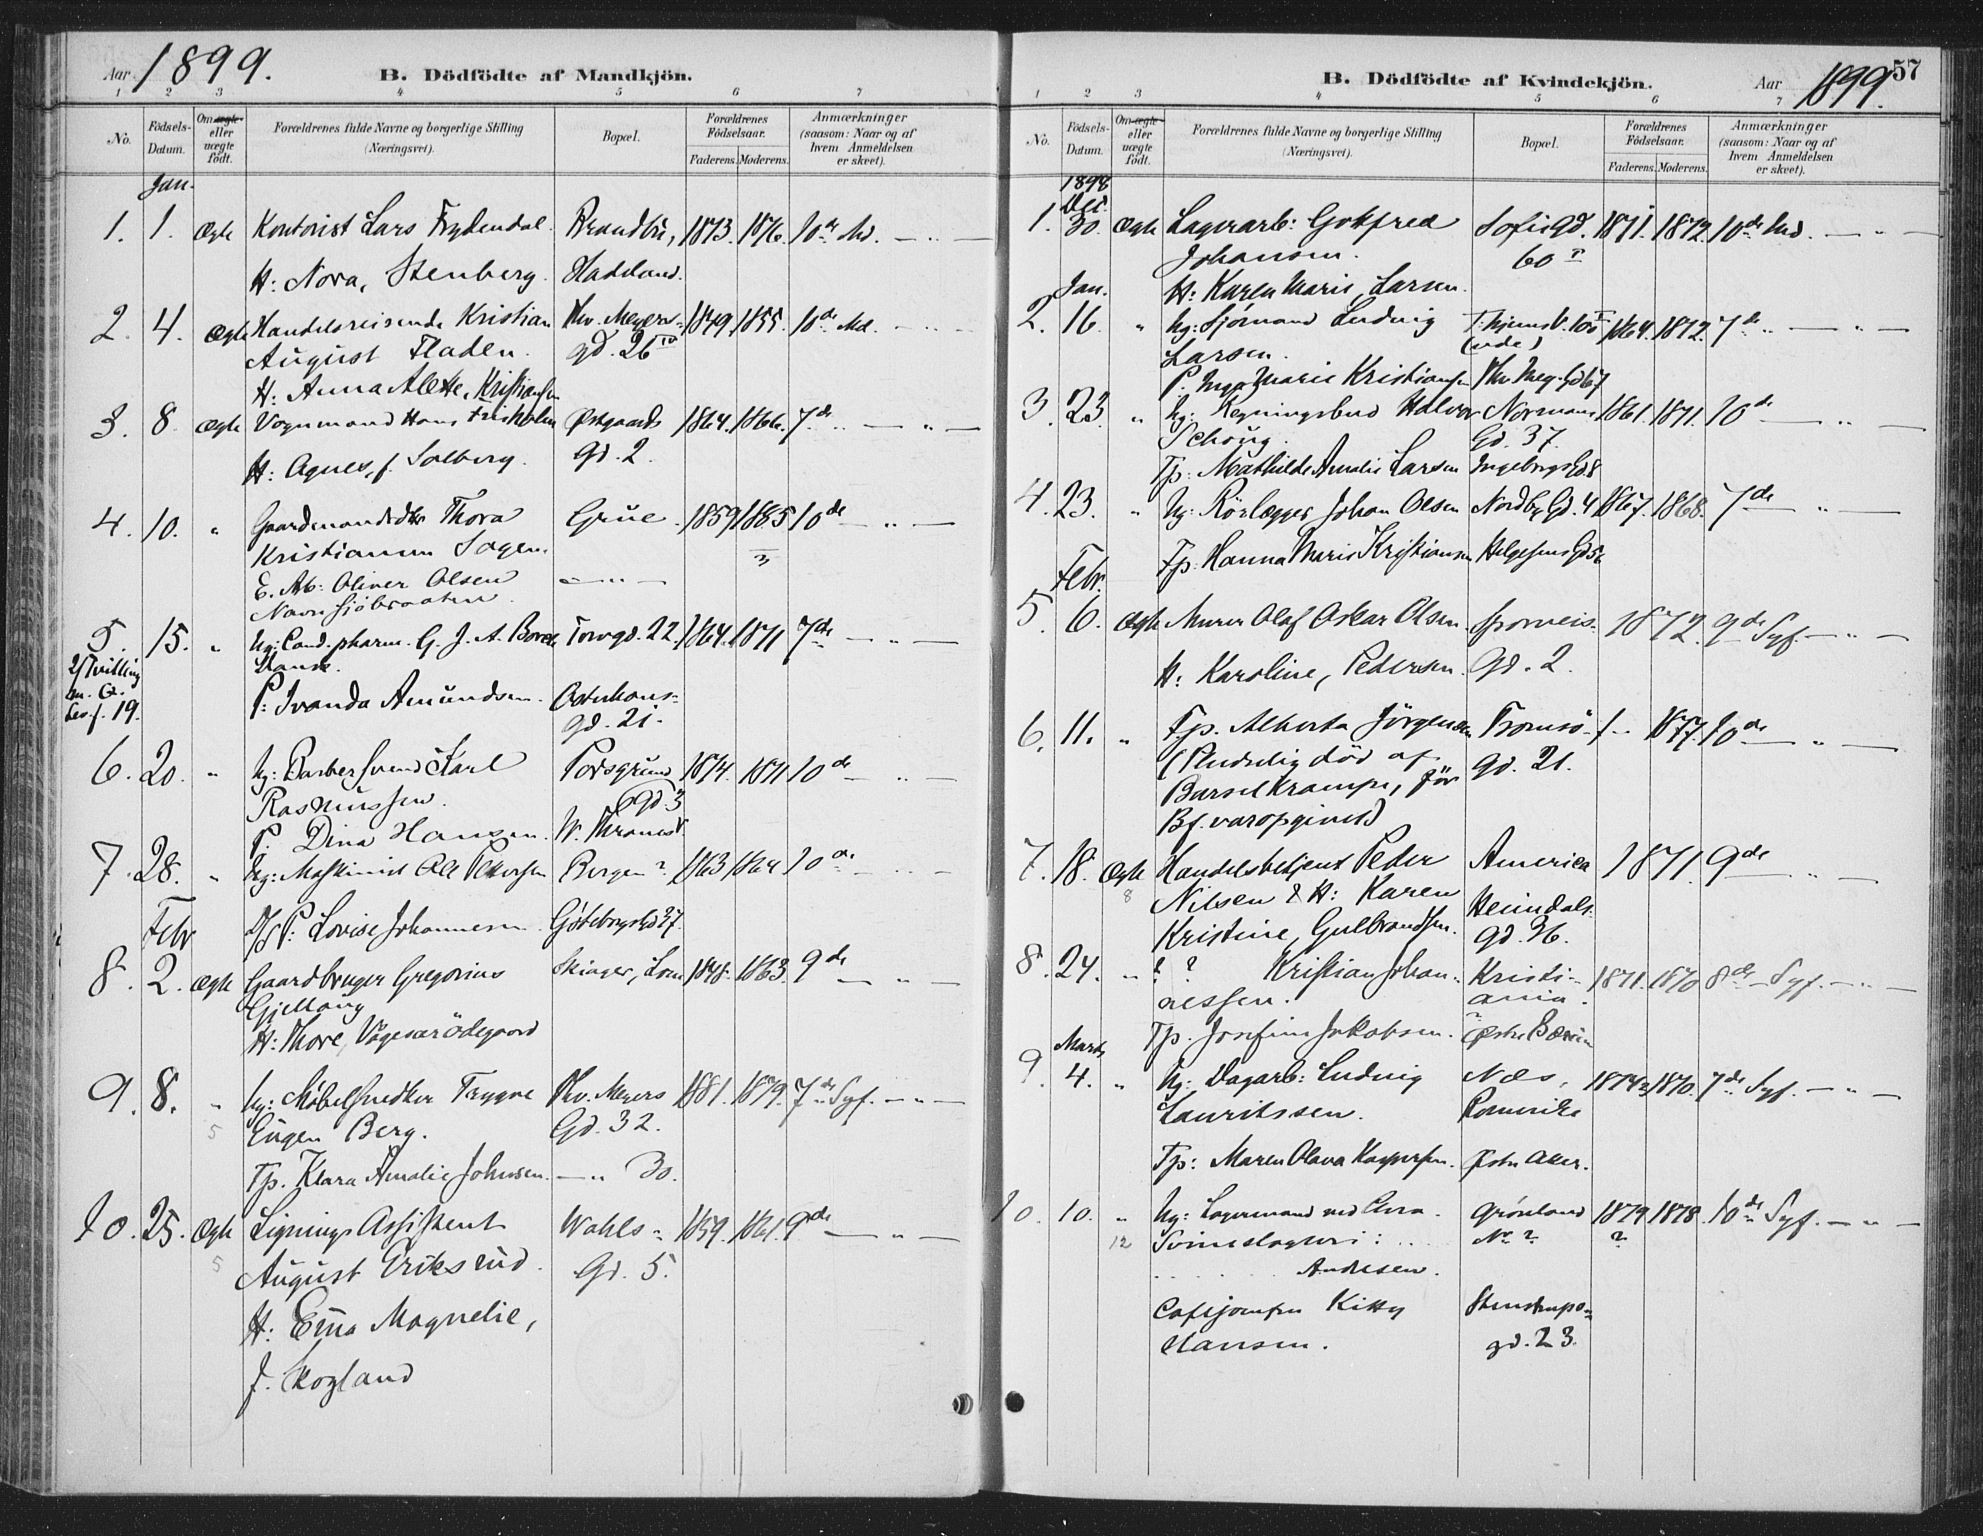 Aar 1899.
B. Dödfödte af Mandkjön.
1 2 3 4 5 6 7
No.
Födsels-Datum.
Om ægte eller uægte födt.
Forældrenes fulde Navne og borgerlige Stilling (Næringsvei).
Bopæl.
Forældrenes Födselsaar.
Faderens. Moderens.
Anmærkninger (saasom: Naar og af hvem Anmeldelsen er skeet).
Jan.
1. 1. Ægte Kontorist Lars Frydendal. Brandbu, 1873. 1876. 10de Md. — " —
H: Nora, Stenberg. Hadeland.
2. 4. Ægte Handelsreisende Kristian Thv. Meyers- 1849. 1855. 10de Md. — " —
August Fladen. gd. 26 IV
H: Anna Alette, Kristiansen
3. 8. Ægte Vognmand Hans Friskolen Østgaards 1864. 1866. 7de — " —
H: Agnes, f. Solberg. Gd. 2.
4. 10. " Gaardmandsdtr Thora Grue. 1859 1885 10de — " —
Kristianum Sagen. ?
E. Ab: Oliver Olsen — " —
Navnsjöbraaten.
5. 15. " Ug: Cand. pharm. G. J. A. Borch Torvgd. 22. 1864. 1871 7de — " —
2/Tvilling
m. G.
Lev. f. 19.
P: Ivanda Amundsen. Osterhaus-
gd. 21.
6. 20. " Ug: Barbersvend Karl Porsgrund 1874. 1871 10de — " —
Rasmussen. Gd. 3
P: Dina Hansen. W. Thranesv.
7. 28. " Ug: Maskinist Ole Petersen Bergen ? 1863 1864 10de — " —
Febr. P: Lovise Johannesen. Göteborgsgd 27.
8. 2. Ægte Gaardbruger Gregorius Skiager, Lom 1848. 1863. 9de — " —
Gjeltaug
H: Thore, Vaagesarödegaard
9. 8. " Ug: Møbelsnedker Trygve Thv. Meyers 1881. 1879. 7de Syf. — " —
5 Eugen Berg. Gd. 32.
Tp. Klara Amalie Johnsen. — " 30.
10. 25. Ægte Lignings Assistent Wahls- 1859. 1861. 9de — " —
5 August Eriksrud. Gd. 5.
H: Ema Magnelie,
f. Skogland
57
B. Dödfödte af Kvindekjön.
Aar 1899.
1 2 3 4 5 6 7
No.
Födsels-Datum.
Om ægte eller uægte födt.
Forældrenes fulde Navne og borgerlige Stilling (Næringsvei).
Bopæl.
Forældrenes Födselsaar.
Faderens. Moderens.
Anmærkninger (saasom: Naar og af hvem Anmeldelsen er skeet).
1898
Dec.
1. 30. Ægte Lagerarb: Gotfred Sofiegd. 1871. 1872. 10de Md. — " —
Johansen. 60 I
Jan. H: Karen Marie, Larsen.
2. 16. " Ug: Sjömand Ludvig T.hjemsv. 100 I 1864. 1872. 7de " — " —
Larsen. (ude)
P. Inga Marie Kristiansen Thv. Mey. Gd 67
3. 23. " Ug: Regningsbud Halvor Normans 1861. 1871. 10de — " —
Schoug. Gd. 37.
Tp: Mathilde Amalie Larsen Ingeborgs Gd 8
4. 23. " Ug: Rörlægger Johan Olsen Nordby Gd. 4 1867. 1868. 7de — " —
Tp: Hanna Marie Kristiansen Helgesens Gd 56
Febr.
5. 6. Ægte Murer Olaf Oskar Olsen. Sporveis- 1872. 9de Syf. — " —
H: Karoline, Pedersen. Gd. 2.
6. 11. " Tp. Alberta Jörgensen Tromsö- / - 1877. 10de — " —
(Pludselig död af gd. 21.
Barselkrampe, för
Bf. var opgived)
7. 18. Ægte Handelsbetjent Peder America 1871. 9de — " —
8 Nilsen & H: Karen Heimdals-
Kristine, Gulbrandsen. gd. 26.
8. 24. " ? ? Kristian Johan- Kristi- 1871. 1870 8de Syf. — " —
nessen. ania.
?
Tp. Josefine Jakobsen. Østre Bærum
Marts
9. 4. " Ug: Dagarb: Ludvig Næs, 1874? 1870. 7de Syf. — " —
Lauritssen. Romerike
Tp: Maren Olava Kaspersen. Østre Aker.
10. 10. " Ug: Lagermand ved Chra. Grönland 1879. 1878. 10de Syf. — " —
12 Svineslagteri: .. No ? ?
. . . . . Andresen.
Cafejomfru Kitty Stenstrups-
Hansen. gd. 23.